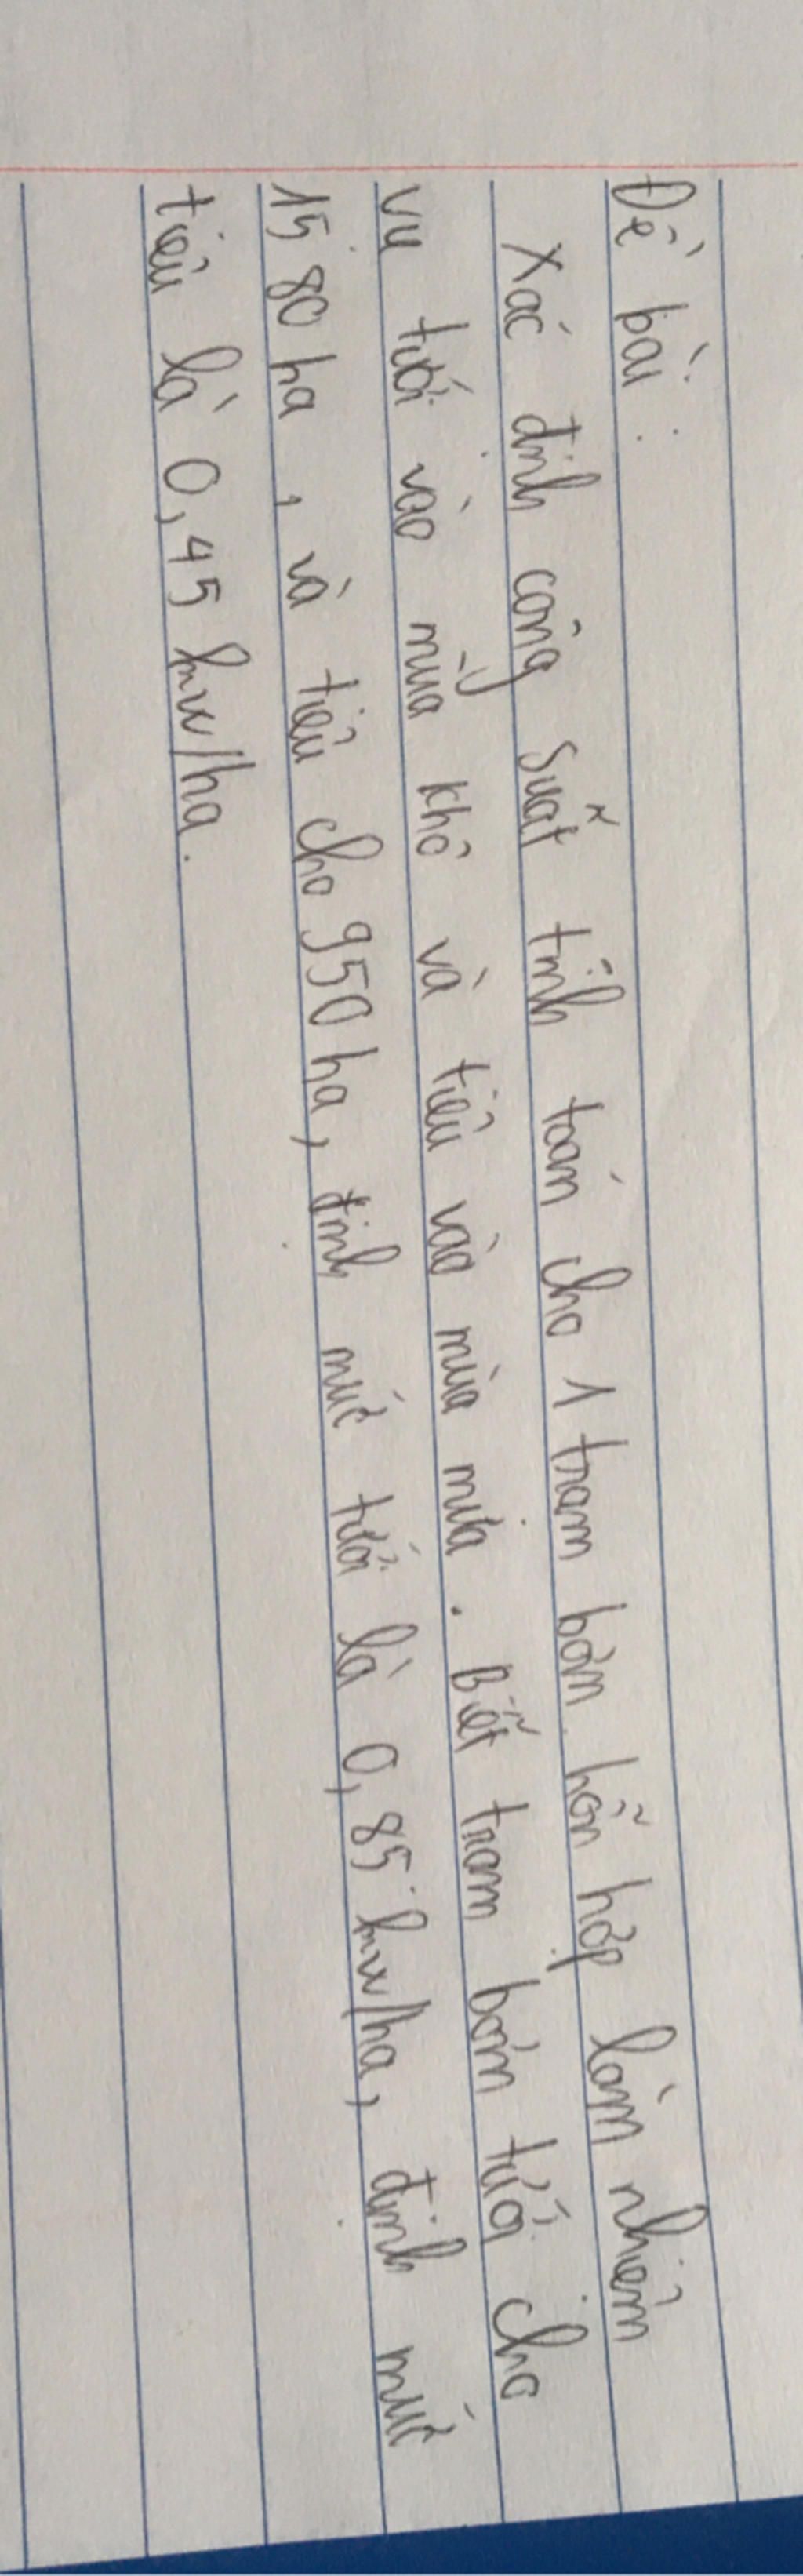 Đề bài:
Xác định công suất tính toán cho 1 trạm bơm hỗn hợp làm nhiệm
vụ tưới vào mùa khô và tiêu vào mùa mưa. Biết trạm bơm tưới cho
1580 ha, và tiêu cho 950 ha, định mức tưới là 0,85 kw/ha, định mức
tiêu là 0,45 kw/ha.